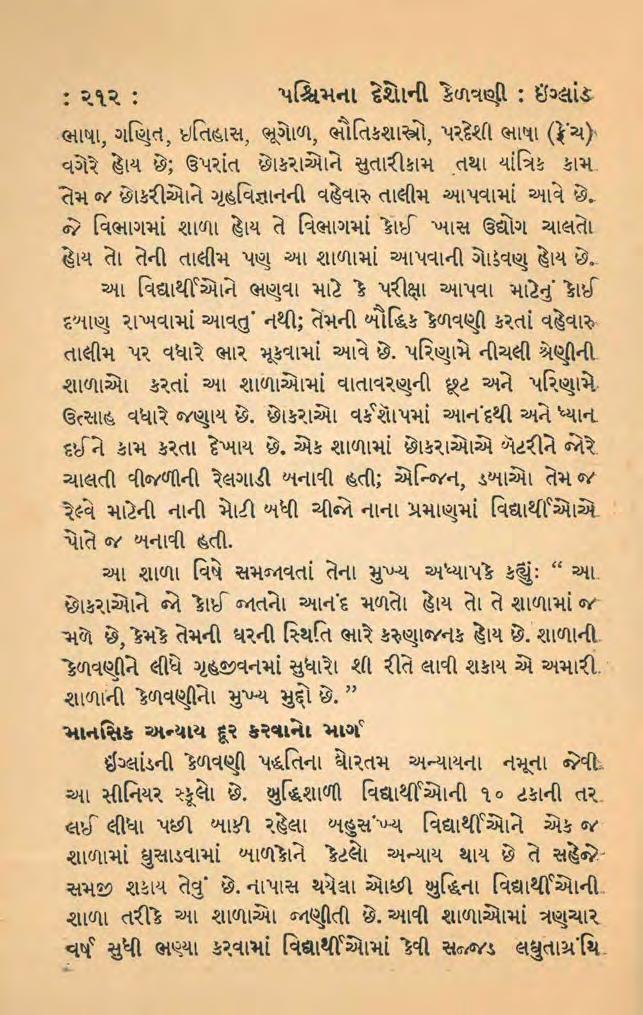 : ૨૧૨ : પશ્ચિમના દેશોની કેળવણી : ઇંગ્લાંડ
ભાષા, ગણિત, ઇતિહાસ, ભૂગોળ, ભૌતિકશાસ્ત્રો, પરદેશી ભાષા (ફ્રેંચ)
વગેરે હોય છે; ઉપરાંત છોકરાઓને સુતારીકામ તથા યાંત્રિક કામ
તેમ જ છોકરીઓને ગૃહવિજ્ઞાનની વહેવારુ તાલીમ આપવામાં આવે છે.
જે વિભાગમાં શાળા હોય તે વિભાગમાં કોઈ ખાસ ઉદ્યોગ ચાલતો
હોય તો તેની તાલીમ પણ આ શાળામાં આપવાની ગોઠવણ હોય છે.
આ વિદ્યાર્થીઓને ભણવા માટે કે પરીક્ષા આપવા માટેનું કોઈ
દબાણ રાખવામાં આવતું નથી; તેમની બૌદ્ધિક કેળવણી કરતાં વહેવારુ
તાલીમ પર વધારે ભાર મૂકવામાં આવે છે. પરિણામે નીચલી શ્રેણીની
શાળાઓ કરતાં આ શાળાઓમાં વાતાવરણની છૂટ અને પરિણામે
ઉત્સાહ વધારે જણાય છે. છોકરાઓ વર્કશૉપમાં આનંદથી અને ધ્યાન
દઈને કામ કરતા દેખાય છે. એક શાળામાં છોકરાઓએ બૅટરીને જોરે
ચાલતી વીજળીની રેલગાડી બનાવી હતી; એન્જિન, ડબાઓ તેમ જ
રેલ્વે માટેની નાની મોટી બધી ચીજો નાના પ્રમાણમાં વિદ્યાર્થીઓએ
પોતે જ બનાવી હતી.
આ શાળા વિષે સમજાવતાં તેના મુખ્ય અધ્યાપકે કહ્યું: “ આ
છોકરાઓને જો કોઈ જાતનો આનંદ મળતો હોય તો તે શાળામાં જ
મળે છે, કેમકે તેમની ઘરની સ્થિતિ ભારે કરુણાજનક હોય છે. શાળાની
કેળવણીને લીધે ગૃહજીવનમાં સુધારો શી રીતે લાવી શકાય એ અમારી
શાળાની કેળવણીનો મુખ્ય મુદ્દો છે. ”
માનસિક અન્યાય દૂર કરવાનો માર્ગ
ઇંગ્લાંડની કેળવણી પદ્ધતિના ઘોરતમ અન્યાયના નમૂના જેવી
આ સીનિયર સ્કૂલો છે. બુદ્ધિશાળી વિદ્યાર્થીઓની ૧૦ ટકાની તર
લઈ લીધા પછી બાકી રહેલા બહુસંખ્ય વિદ્યાર્થીઓને એક જ
શાળામાં ઘુસાડવામાં બાળકોને કેટલો અન્યાય થાય છે તે સહેજે
સમજી શકાય તેવું છે. નાપાસ થયેલા ઓછી બુદ્ધિના વિદ્યાર્થીઓની
શાળા તરીકે આ શાળાઓ જાણીતી છે. આવી શાળાઓમાં ત્રણચાર
વર્ષ સુધી ભણ્યા કરવામાં વિદ્યાર્થીઓમાં કેવી સજ્જડ લઘુતાગ્રંથિ